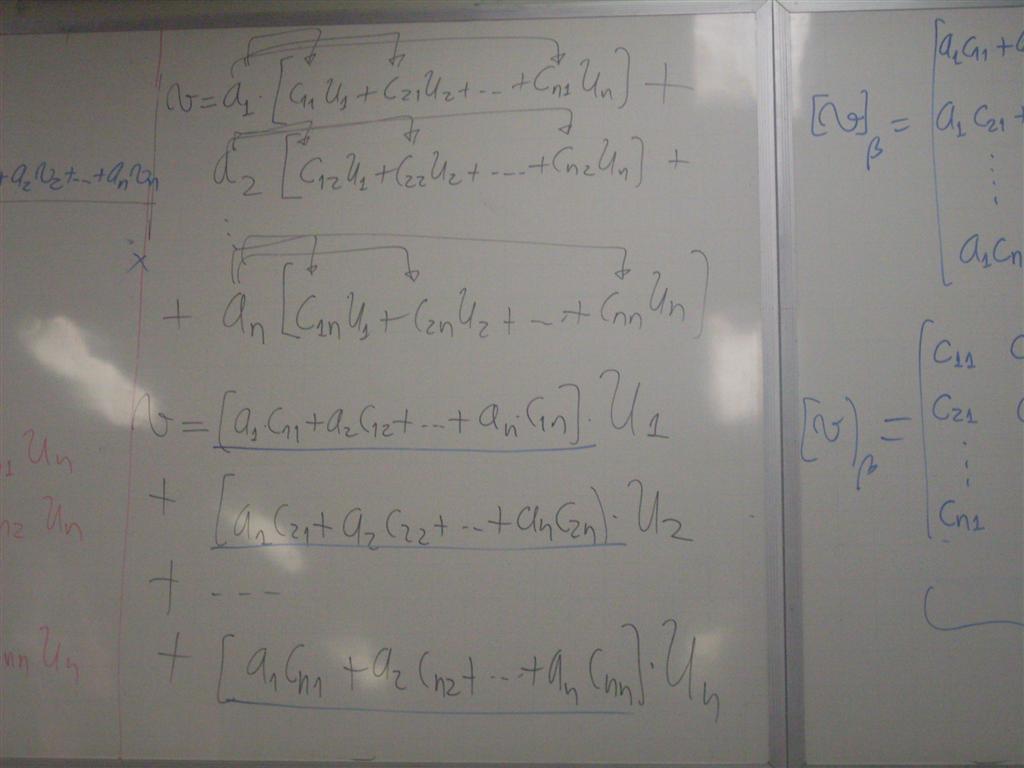 +a₂v₂+...+aₙvₙ
x
Uₙ
n₂ Uₙ
nn Uₙ
v = a₁·[C₁₁U₁+C₂₁U₂+...+Cₙ₁Uₙ] +
a₂ [C₁₂U₁+C₂₂U₂+...+Cₙ₂Uₙ] +
⋮
+ aₙ [C₁ₙU₁+C₂ₙU₂+...+CₙₙUₙ]
v = [a₁·C₁₁+a₂C₁₂+...+aₙ·C₁ₙ]·U₁
+ [a₁C₂₁+a₂C₂₂+...+aₙC₂ₙ]·U₂
+ ----
+ [a₁Cₙ₁+a₂Cₙ₂+...+aₙCₙₙ]·Uₙ
[v]ᵦ = [a₁C₁₁+
a₁C₂₁+
⋮
a₁Cₙ
[v]ᵦ = [C₁₁
C₂₁
⋮
Cₙ₁